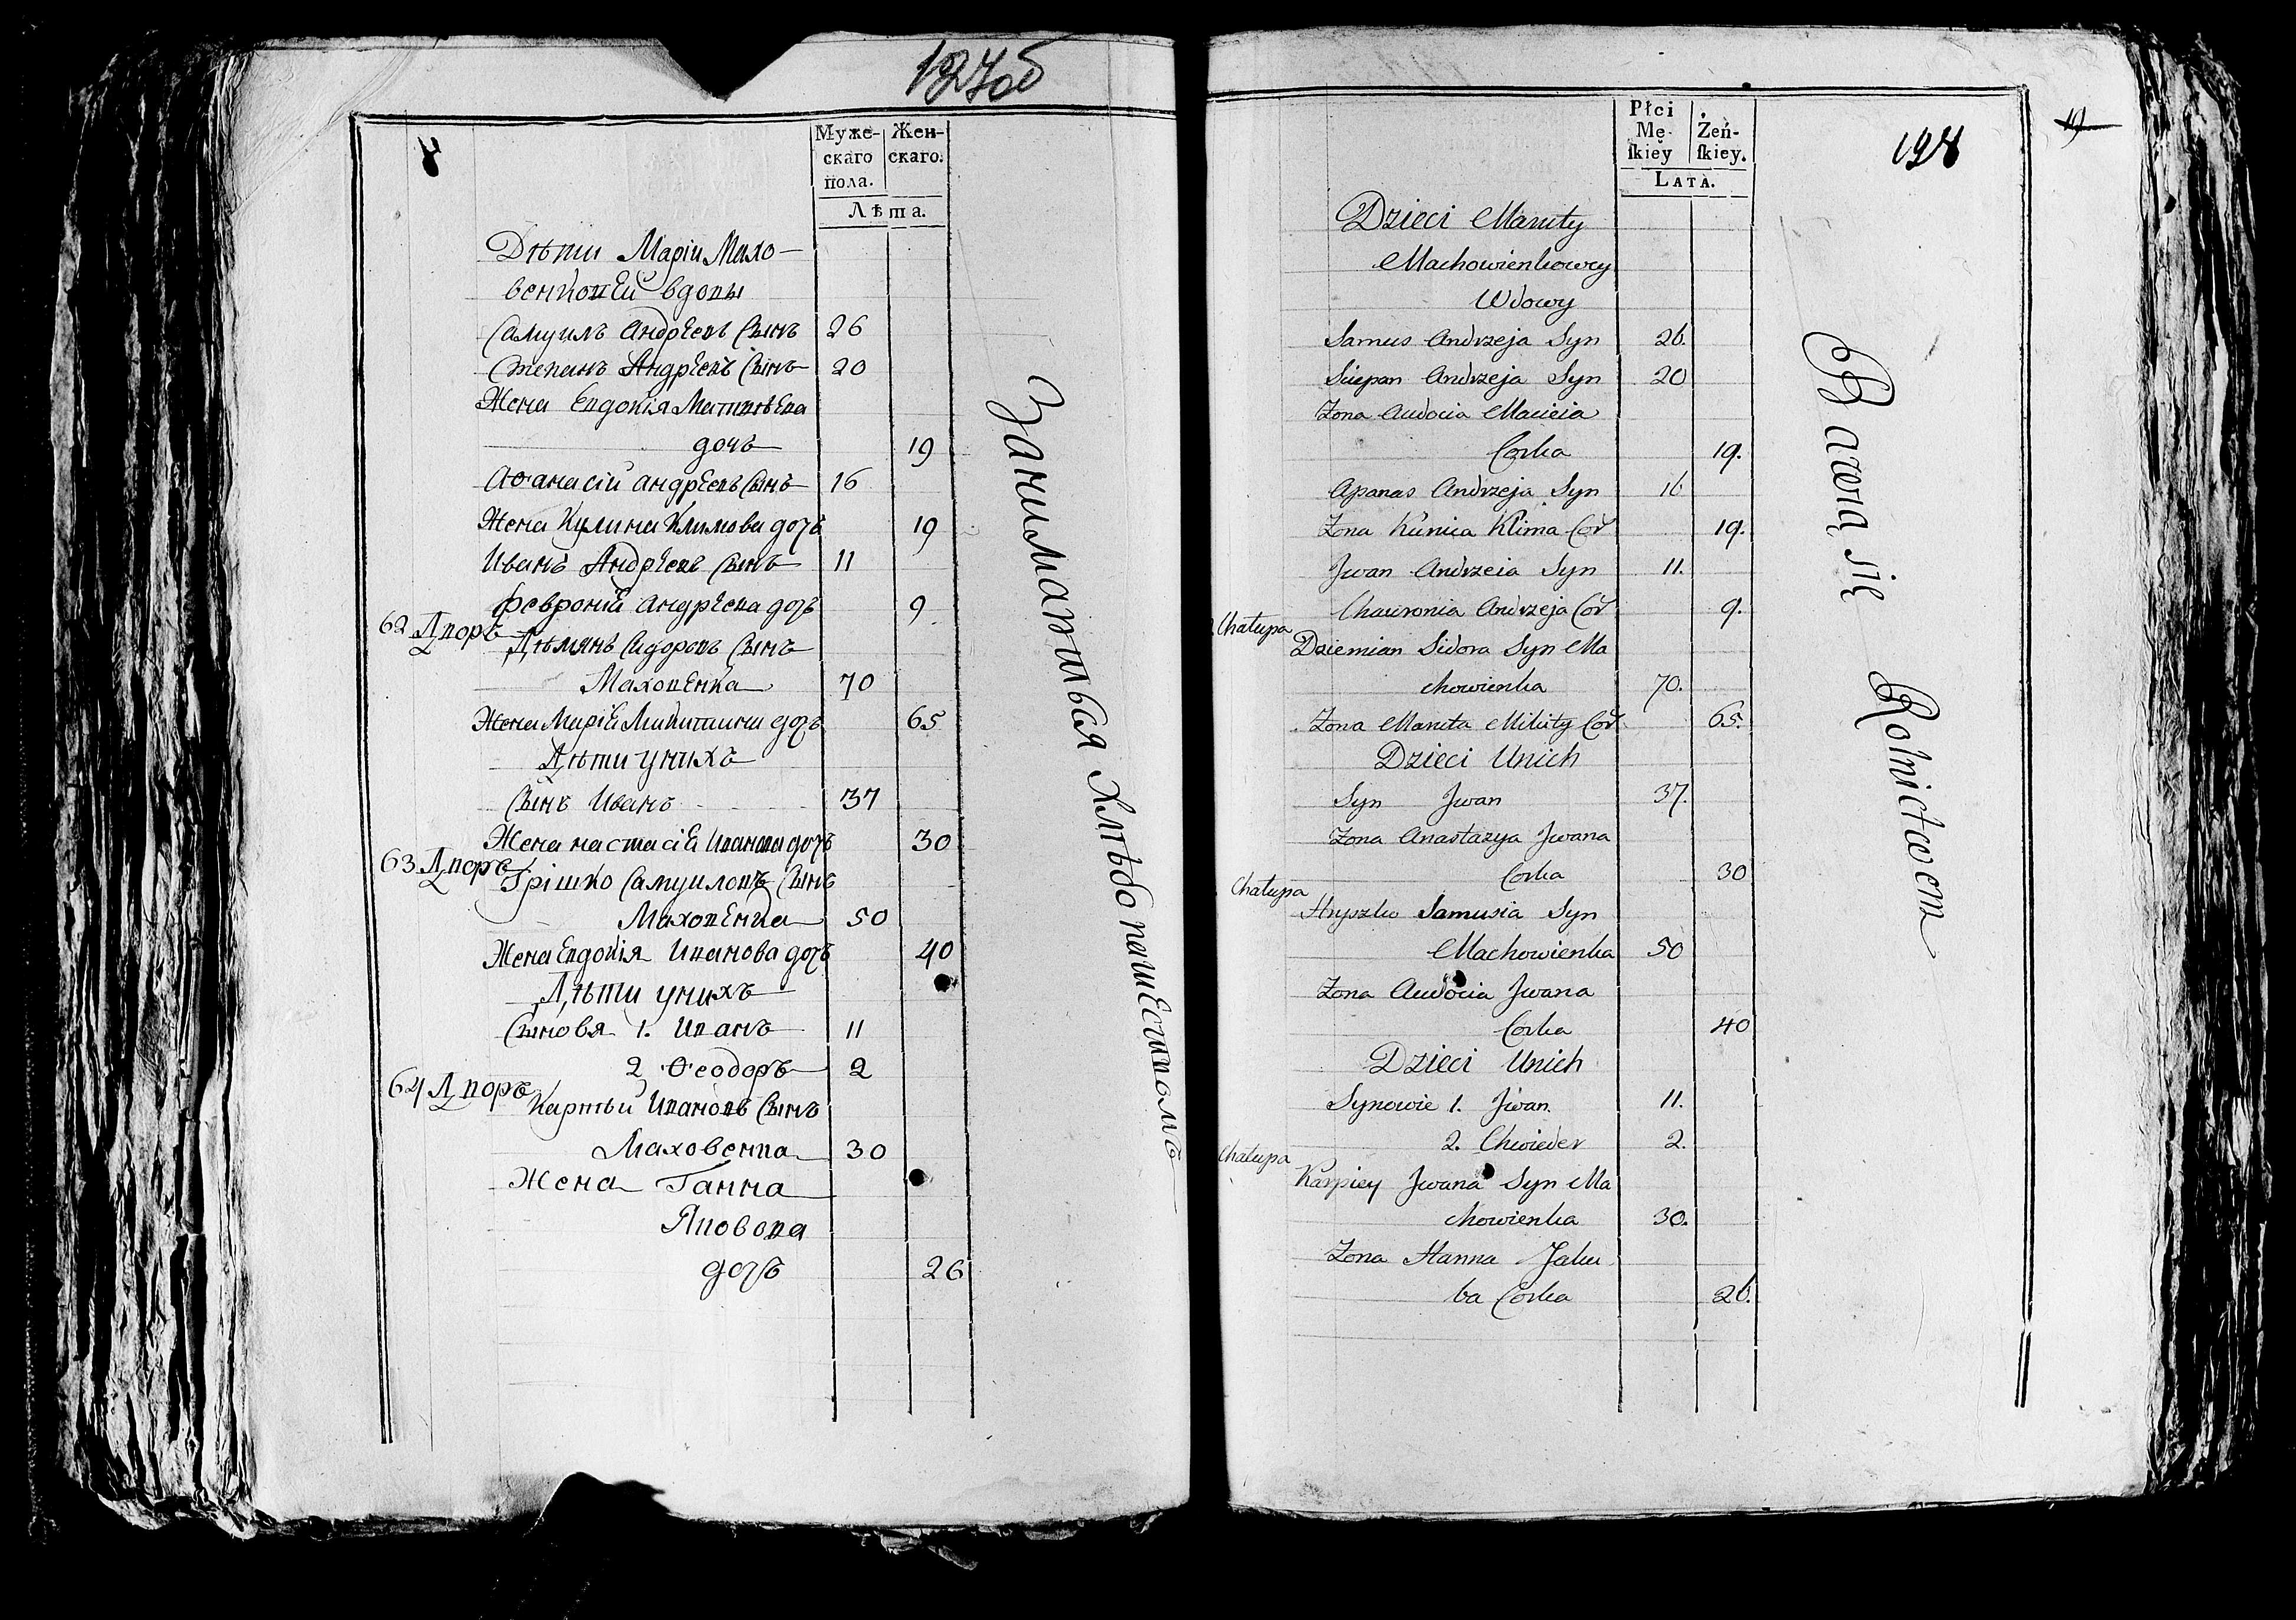 127об
Муже-
скаго
пола.
Жен-
скаго.
Лѣта.
Дѣти Маріи Махо-
венковей вдовы
Самуилъ Андреевъ Сынъ 26
Степанъ Андреевъ Сынъ 20
Жена Евдокія Матвѣева
дочь 19
Аѳанасій Андреевъ Сынъ 16
Жена Кулина Климова дочь 19
Иванъ Андреевъ Сынъ 11
Февроніе Андреева дочь 9
62 Дворъ
Дѣмянъ Сидоровъ Сынъ
Маховенка 70
Жена Маріе Микитина дочь 65
Дѣти у нихъ
Сынъ Иванъ 37
Жена настасіе Иванова дочь 30
63 Дворъ
Грішко Самуиловъ Сынъ
Маховенка 50
Жена Евдокія Иванова дочь 40
Дѣти у нихъ
Сыновя 1. Иванъ 11
2 Ѳеодоръ 2
64 Дворъ
Карпѣй Ивановъ Сынъ
Маховенка 30
Жена Ганна
Яковова
дочь 26
Занимаються хлѣбопашествомъ
Płci
Mę-
ſkiey
Żeń-
ſkiey.
Lata.
198
19
Dzieci Maruty
Machowienkowey
Wdowy
Samus Andrzeja Syn 26.
Sciepan Andrzeja Syn 20
Zona Audocia Macieia
Corka 19.
Apanas Andrzeja Syn 16
Zona Kunica Klima Cor 19.
Jwan Andrzeia Syn 11.
Chawronia Andrzeja Cor 9.
Chałupa
Dziemian Sidora Syn Ma
chowienka 70.
Zona Maruta Mikity Cor 65.
Dzieci Unich
Syn Jwan 37.
Zona Anastazya Jwana
Corka 30
Chałupa
Hryszko Samusia Syn
Machowienka 50
Zona Audocia Jwana
Corka 40
Dzieci Unich
Synowie 1. Jwan. 11.
2. Chwieder 2.
Chałupa
Karpiey Jwana Syn Ma
chowienka 30.
Zona Hanna Jaku
ba Corka 26.
Bawią się Rolnictwem